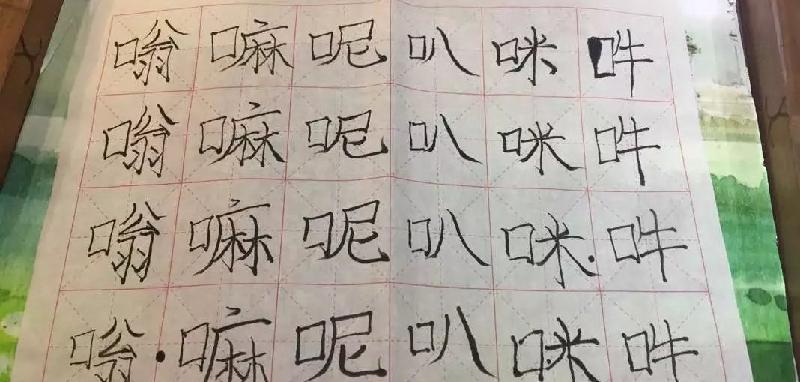 嗡嘛呢叭咪吽
嗡嘛呢叭咪吽
嗡嘛呢叭咪吽
嗡嘛呢叭咪吽